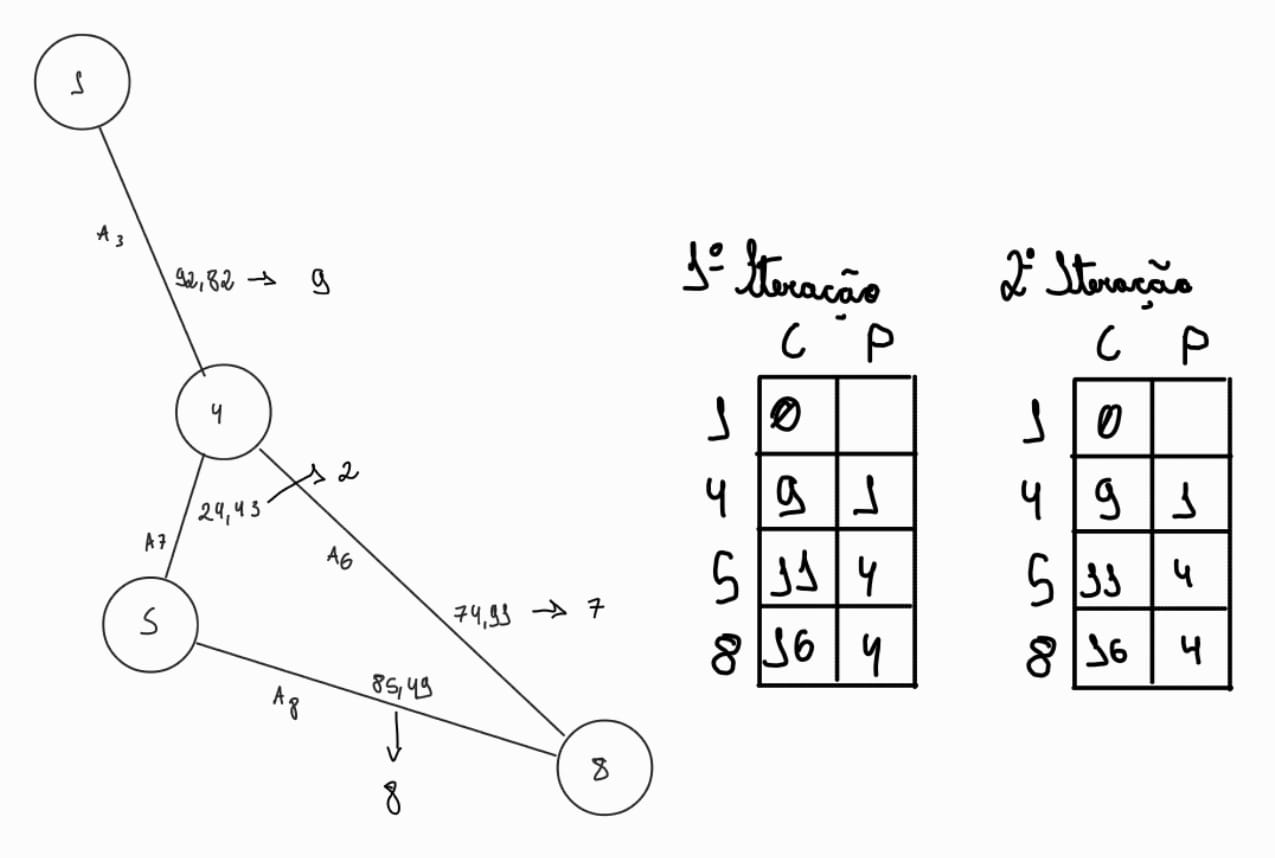 1
A3
92,82 → 9
4
24,43 → 2
A7
A6
5
74,91 → 7
A8
85,49
↓
8
8
1º Iteração
C P
1 0
4 9 1
5 11 4
8 16 4
2º Iteração
C P
1 0
4 9 1
5 11 4
8 16 4